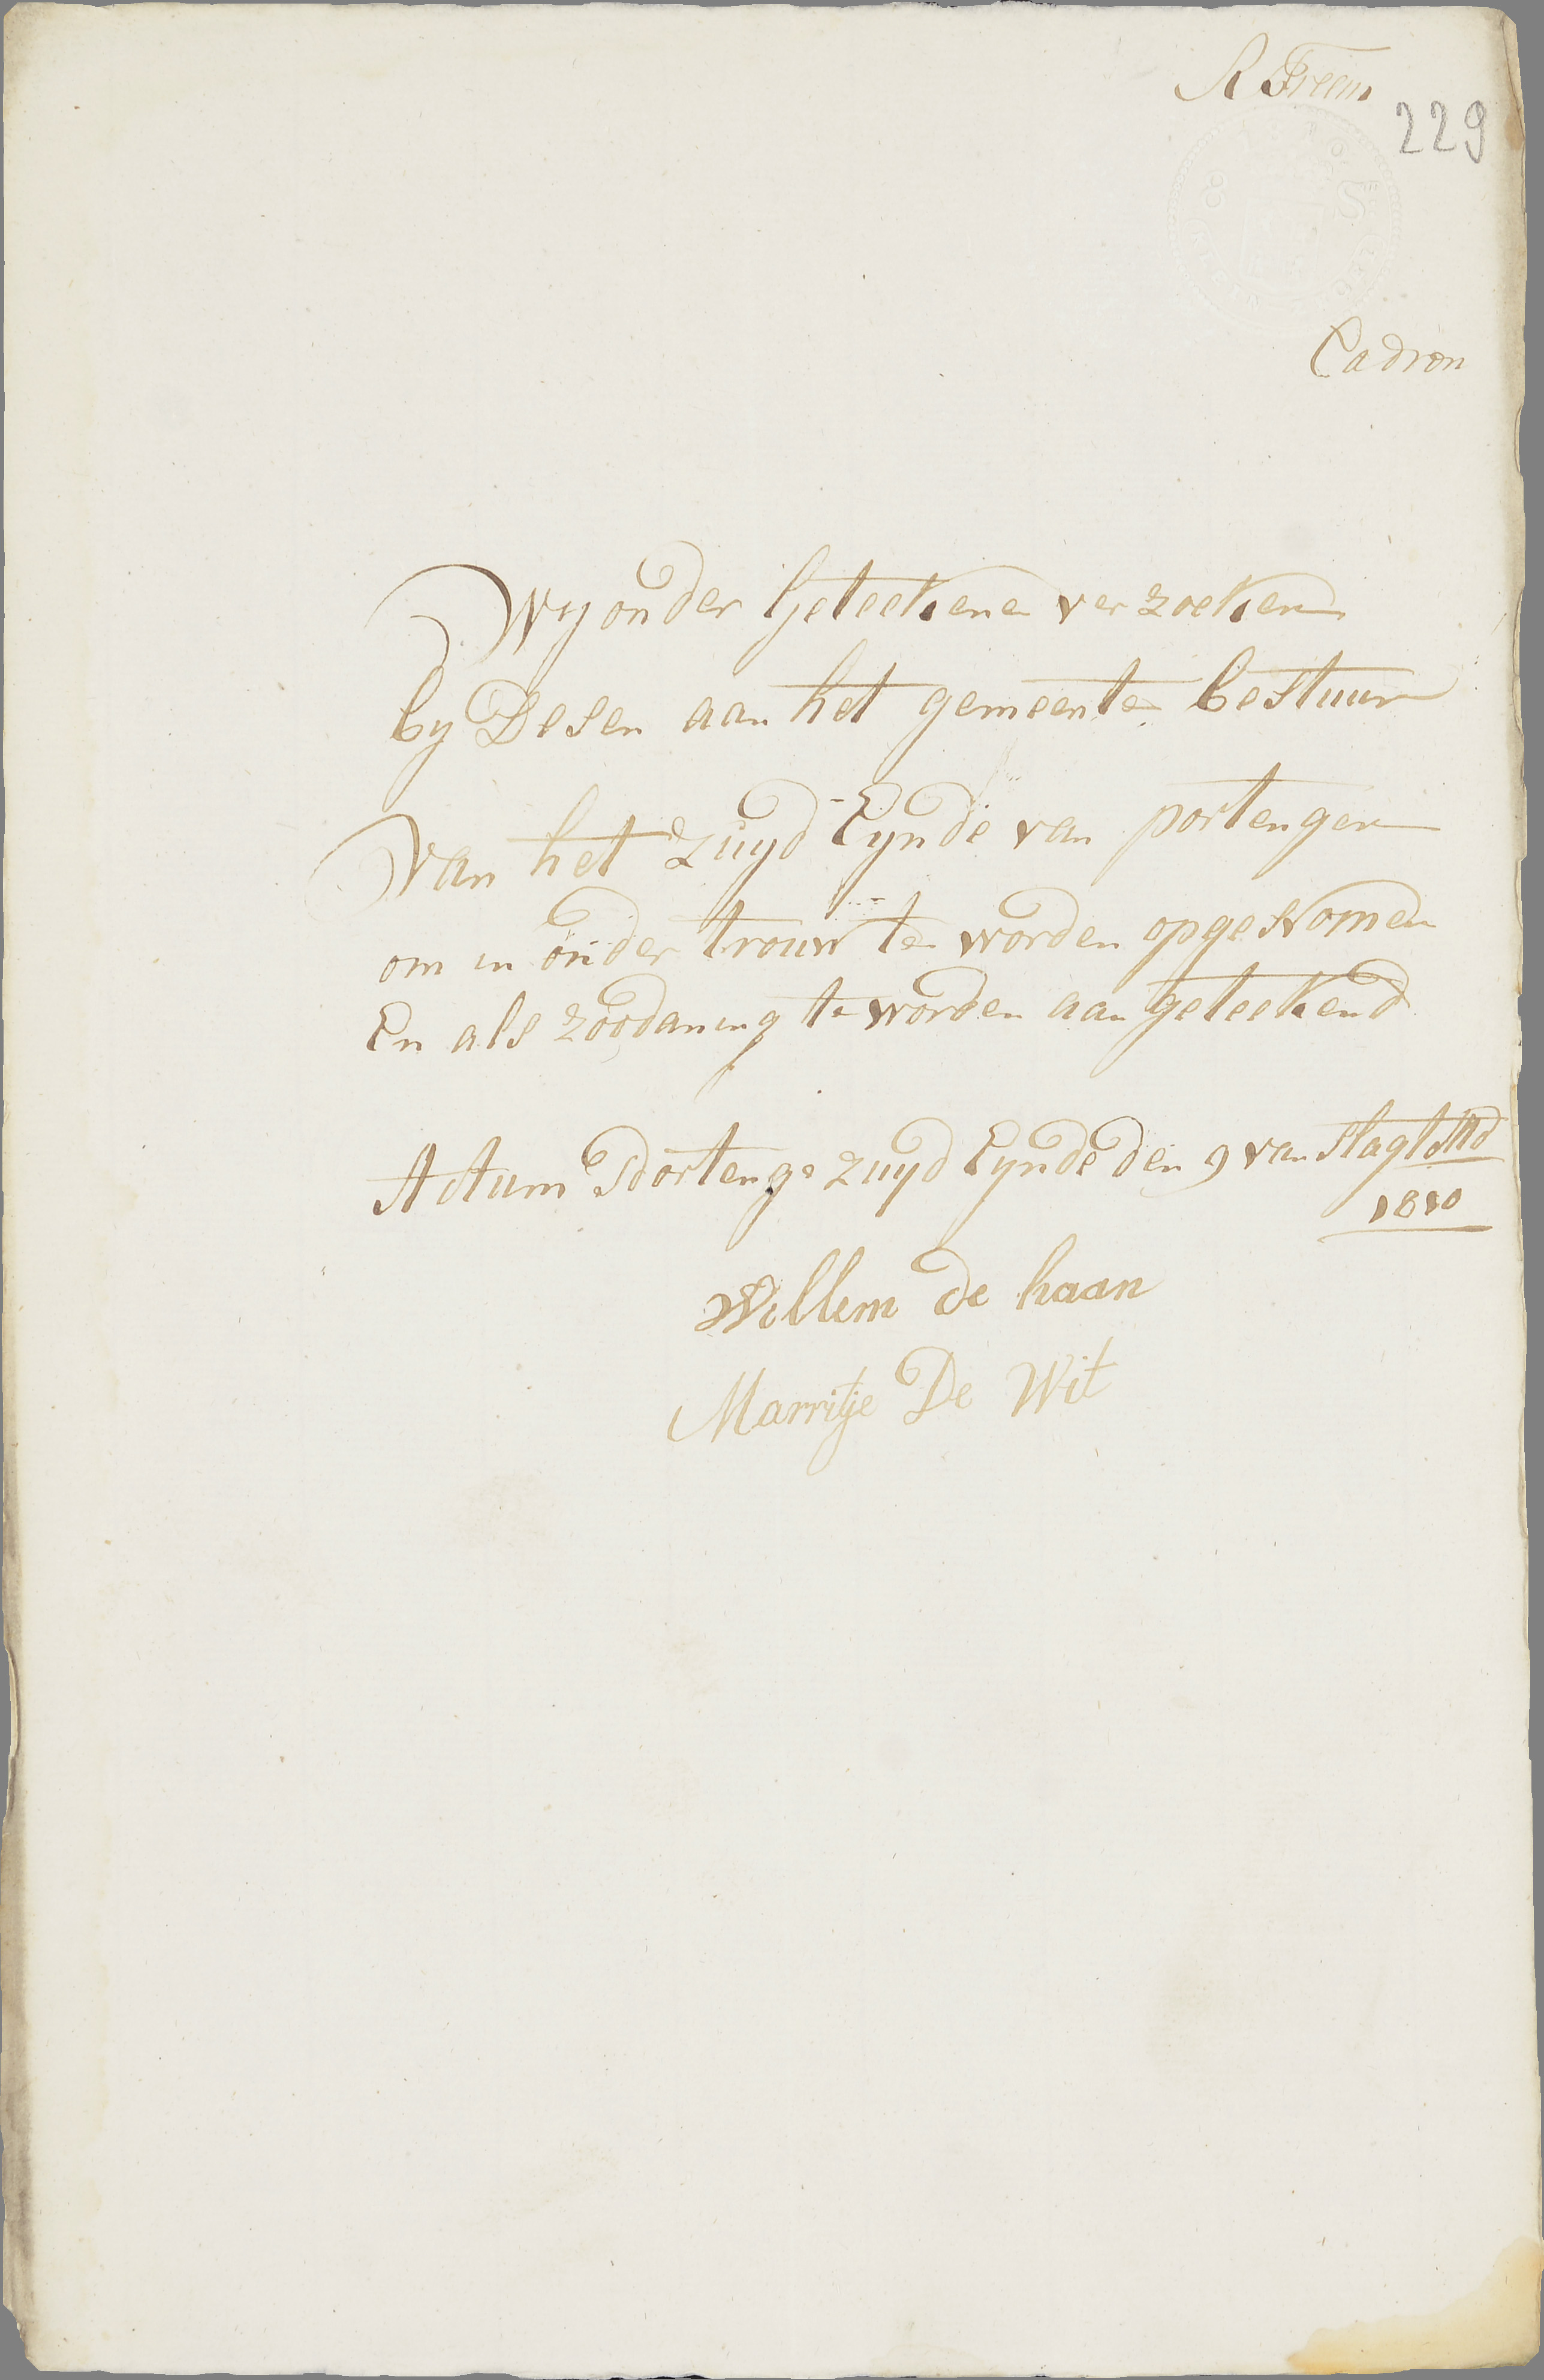 229
Cadron
Wij onder Geteekene verzoeken
by Desen aan het gemeente bestuur
Van het Zuyd-Eynde van portengen
om in onder trouw te worden opgenomen
En als zoodaning te worden aan geteekend
Actum Portenge Zuyd Eynde den 9 van Slagtmd
1810
Willem de haan
Marritje De Wit